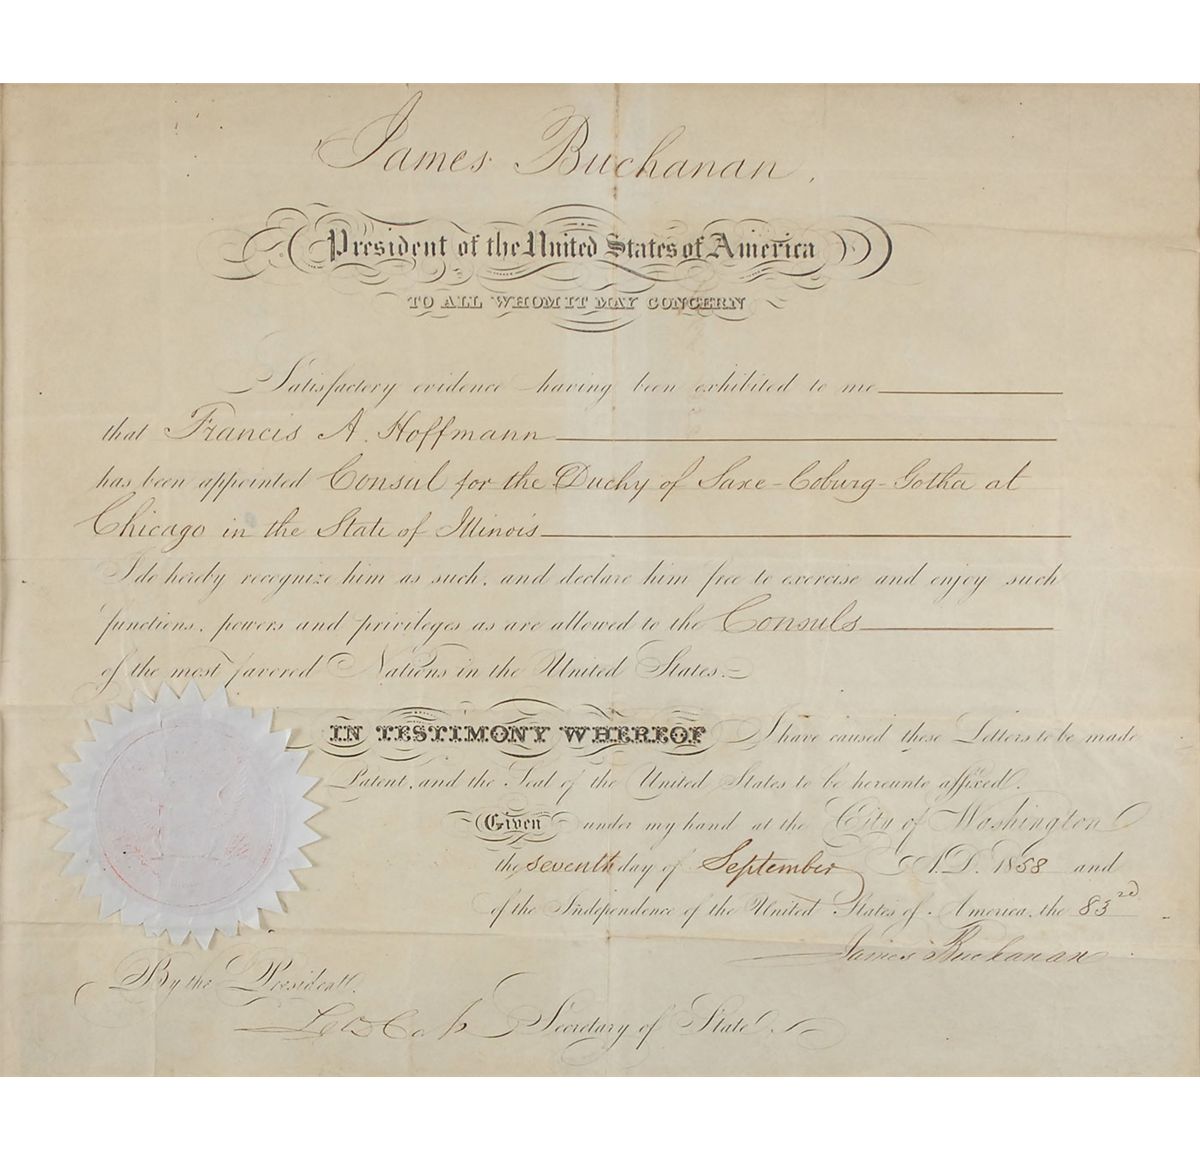 James Buchanan,
President of the United States of America
TO ALL WHOM IT MAY CONCERN
Satisfactory evidence having been exhibited to me
that Francis A. Hoffmann
has been appointed Consul for the Duchy of Saxe-Coburg-Gotha at
Chicago in the State of Illinois
I do hereby recognize him as such, and declare him free to exercise and enjoy such
functions, powers and privileges as are allowed to the Consuls
of the most favored Nations in the United States.
IN TESTIMONY WHEREOF I have caused these Letters to be made
Patent, and the Seal of the United States to be hereunto affixed.
Given under my hand at the City of Washington
the seventh day of September A.D. 1858 and
of the Independence of the United States of America, the 83rd
James Buchanan
By the President.
Lew Cass Secretary of State.